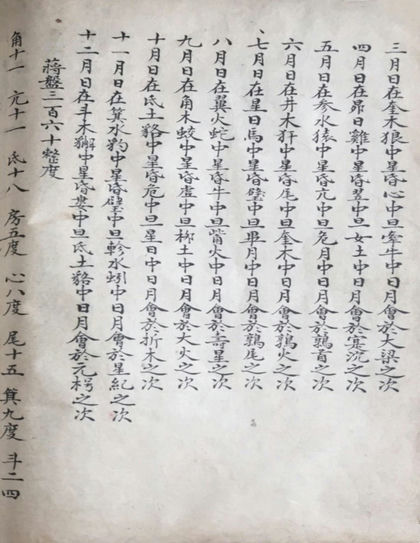 三月日在奎木狼中星昏心中旦牽牛中日月會於大梁之次
四月日在昴日雞中星昏翌中旦女土中日月會於寔沉之次
五月日在参水猿中星昏亢中旦危月中日月會於鶉首之次
六月日在井木犴中星昏尾中旦奎木中日月會於鶉火之次
七月日在星日馬中星昏壁中旦畢月中日月會於鶉尾之次
八月日在翼火蛇中星昏牛中旦觜火中日月會於壽星之次
九月日在角木蛟中星昏虛中旦柳土中日月會於大火之次
十月日在氐土貉中星昏危中旦星日中日月會於折木之次
十一月日在箕水豹中星昏壁中旦軫水蚓中日月會於星紀之次
十二月日在斗木獬中星昏婁中旦氐土貉中日月會於元枵之次
蒋盤三百六十整度
角十一 亢十一 氐十八 房五度 心八度 尾十五 箕九度 斗二四